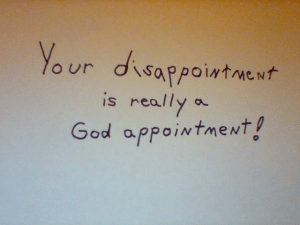 Your disappointment
is really a
God appointment!